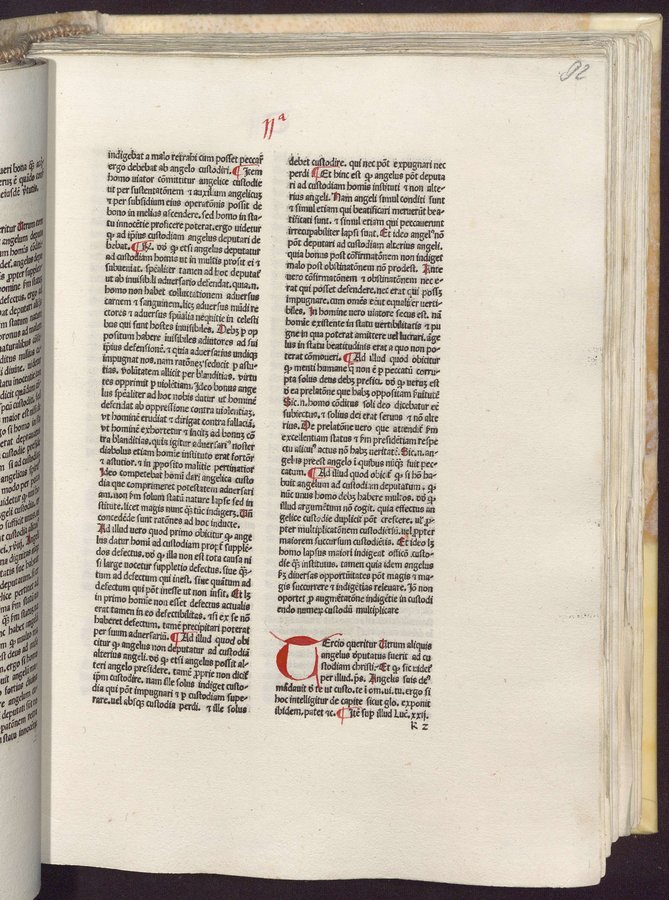 92
IIª
indigebat a malo retrahi cum posset peccar̄
ergo debebat ab angelo custodiri. ¶ Item
homo viator cōmittitur angelice custodie
ut per sustentatōnem ⁊ auxilium angelicuȝ
⁊ per subsidium eius operatōnis possit de
bono in melius ascendere. sed homo in sta
tu innocētie proficere poterat. ergo uidetur
ꝙ ad ip̄ius custodiam angelus deputari de
bebat. ¶ ꝙ etsi angelus deputatur
ad custodiam homīs ut in multis prosit ei ⁊
subueniat. sp̄aliter tamen ad hoc deputat᷑
ut ab inuisibili aduersario defendat. quia.n.
homo non habet colluctationem aduersus
carnem ⁊ sanguinem. licȝ aduersus mūdi re
ctores ⁊ aduersus sp̄alia nequitie in celesti
bus qui sunt hostes inuisibiles. Debȝ ꝑ op
positum habere iuisibiles adiutores ad sui
ip̄ius defensionē. ⁊ quia aduersarius undiqȝ
impugnat nos. nam ratōneȝ seducit ꝑ astu
tias. volūtatem allicit per blanditias. virtu
tes opprimit ꝑ violētiam. Ideo bonus ange
lus sp̄aliter ad hoc nobis datur ut hominē
defendat ab oppressione contra uiolentiaȝ.
vt hominē erudiat ⁊ dirigat contra fallaciā.
vt hominē exhortetur ⁊ incitȝ ad bonuȝ cō
tra blanditias. quia igitur aduersari᷒ noster
diabolus etiam homīe instituto erat fortior̄
⁊ astutior. ⁊ in ꝓposito malitie pertinatior
Ideo competebat homī dari angelica custo
dia que comprimeret potestatem aduersari
am. non solum statū nature lapse sed in
stitute. licet magis nunc tūc indigerȝ. Un̄
concedēde sunt ratōnes ad hoc inducte.
Ad illud vero quod primo obicitur ꝙ ange
lus datur homī ad custodiam propt̄ supple
dos defectus. ꝙ illa non est tota causa ni
si large nocetur suppletio defectus. siue quā
tum ad defectum qui inest. siue quātum ad
defectum qui pōt inesse ut non insit. Et lȝ
in primo homīe non esset defectus actualis
erat tamen in eo defectibilitas. ⁊ si ex se nō
haberet defectum. tamē precipitari poterat
per suum aduersariū. ¶ Ad illud quod obi
citur ꝙ angelus non deputatur ad custodiā
alterius angeli. ꝙ etsi angelus possit al
teri angelo presidere. tamē ꝓprie non dicit᷑
ip̄m custodire. nam ille solus indiget custo
dia qui pōt impugnari ⁊ ꝑ custodiam supe
rare. uel absqȝ custodia perdi. ⁊ ille solus
debet custodire. qui nec pōt expugnari nec
perdi ¶ Et hinc est ꝙ angelus pōt deputa
ri ad custodiam homīs instituti ⁊ non alte
rius angeli. Nam angeli simul conditi sunt
⁊ simul etiam qui beatificari meruerūt bea
tificati sunt. ⁊ simul etiam qui peccauerunt
irrecupabiliter lapsi sunt. Et ideo angel᷒ nō
pōt deputari ad custodiam alterius angeli.
quia bonus post cōfirmatōnem non indiget
malo post obstinatōnem nō prodest. Ante
uero cōfirmatōnem ⁊ obstinatōnem nec e
rat qui posset defendere. nec erat qui possȝ
impugnare. cum omēs eēnt equaliter uerti
biles. In homine uero uiatore secus est. nā
homīe existente in statu uertibilitatis ⁊ pu
gne in qua poterat amittere uel lucrari. āge
lus in statu beatitudinis erat a quo non po
terat cōmoueri. ¶ Ad illud quod obicitur
ꝙ menti humane non ē ꝑ peccatū corru
pta solus deus debȝ presici. ꝙ uerȝ est
de ea prelatōne que habȝ oppositam suitutē
Sic.n. homo cōditus soli deo dicebatur eē
subiectus. ⁊ solius dei erat seruus ⁊ nō alte
rius. De prelatōne vero que attendit᷑
excellentiam status ⁊ presidētiam respe
ctu alicui᷒ actus nō habȝ veritatē. Sic.n. an
gelis preest angelo ī quibus nūqȝ fuit pec
catum. ¶ Ad illud quod obicit᷑ ꝙ si hō ha
buit angelum ad custodiam deputatum. ꝙ
nūc unus homo debȝ habere multos. ꝙ
illud argumētum nō cogit. quia effectus an
gelice custodie duplicit̄ pōt crescere. ul᷑ ꝓ
pter multiplicatōnem custodiētiū. uel ꝓpter
maiorem succursum custodiētis. Et ideo lȝ
homo lapsus maiori indigeat officō custo
die instituitus. tamen quia idem angelus
diuersas opportūitates pōt magis ⁊ ma
gis succurrere ⁊ indigētias releuare. Jō non
oportet ꝓ augmētatōne indigētie in custodi
endo numeȝ custodiū multiplicare
Tercio queritur Utrum aliquis
angelus deputatus fuerit ad cu
stodiam christi. Et ꝙ sic videt᷑
per illud. ps. Angelis suis de᷒
mādauit de te ut custo. te ī om. ui. tu. ergo si
hoc intelligitur de capite sicut glo. exponit
ibidem. patet ⁊c. ¶ Ite sup illud Luc̄. xxij.
k 2